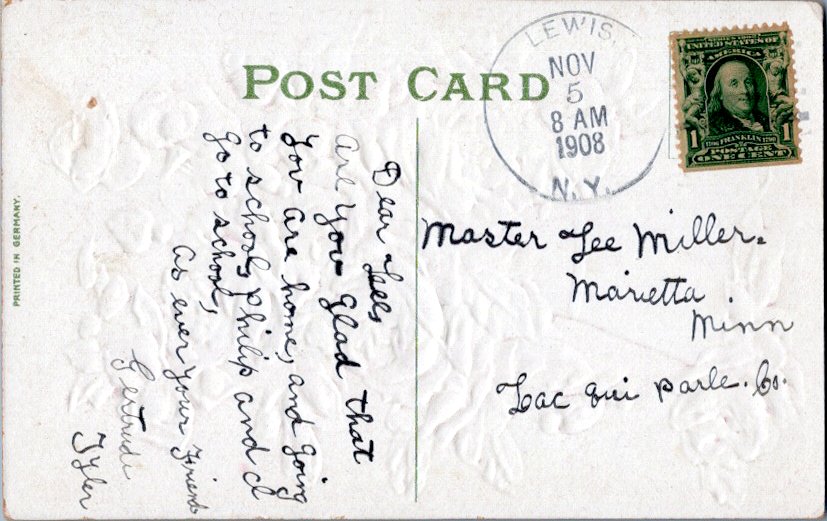 POST CARD
LEWIS,
NOV
5
8 AM
1908
N.Y.
SERIES 1902
UNITED STATES OF
AMERICA
1 1
1706 FRANKLIN 1790
POSTAGE
ONE CENT
PRINTED IN GERMANY.
Dear Lee,
Are you glad that
you are home, and going
to school, Philip and I
go to school,
As ever your Friend
Gertrude
Tyler
Master Lee Miller.
Marietta
Minn
Lac qui parle. Co.